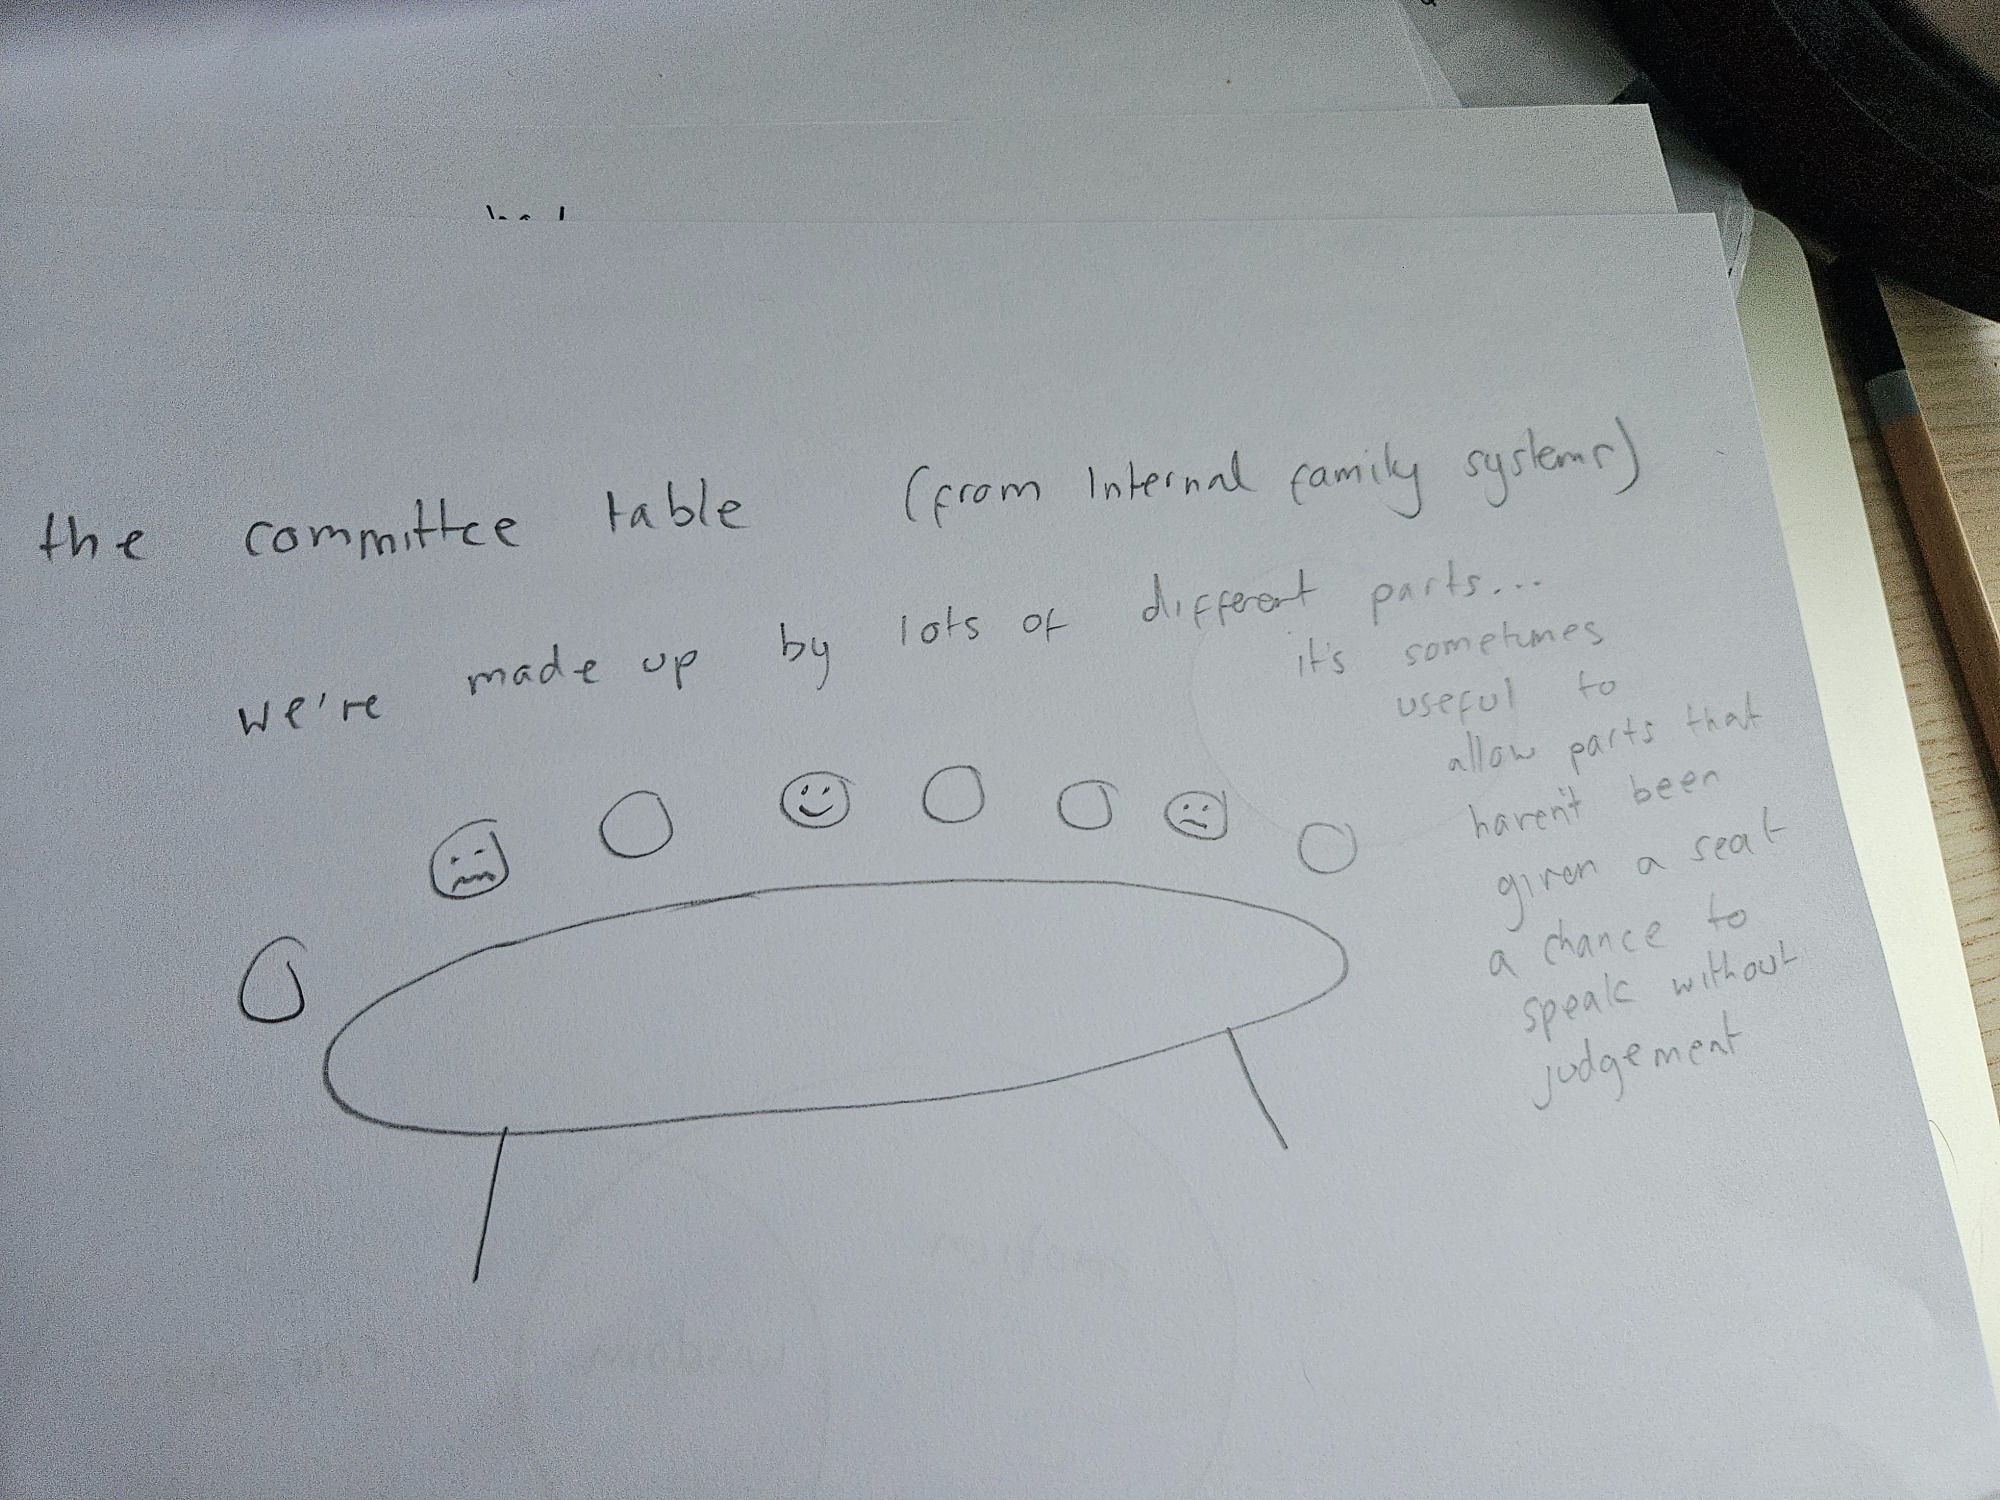 the committee table (from Internal family systems)
we're made up by lots of different parts...
it's sometimes
useful to
allow parts that
haven't been
given a seat
a chance to
speak without
judgement